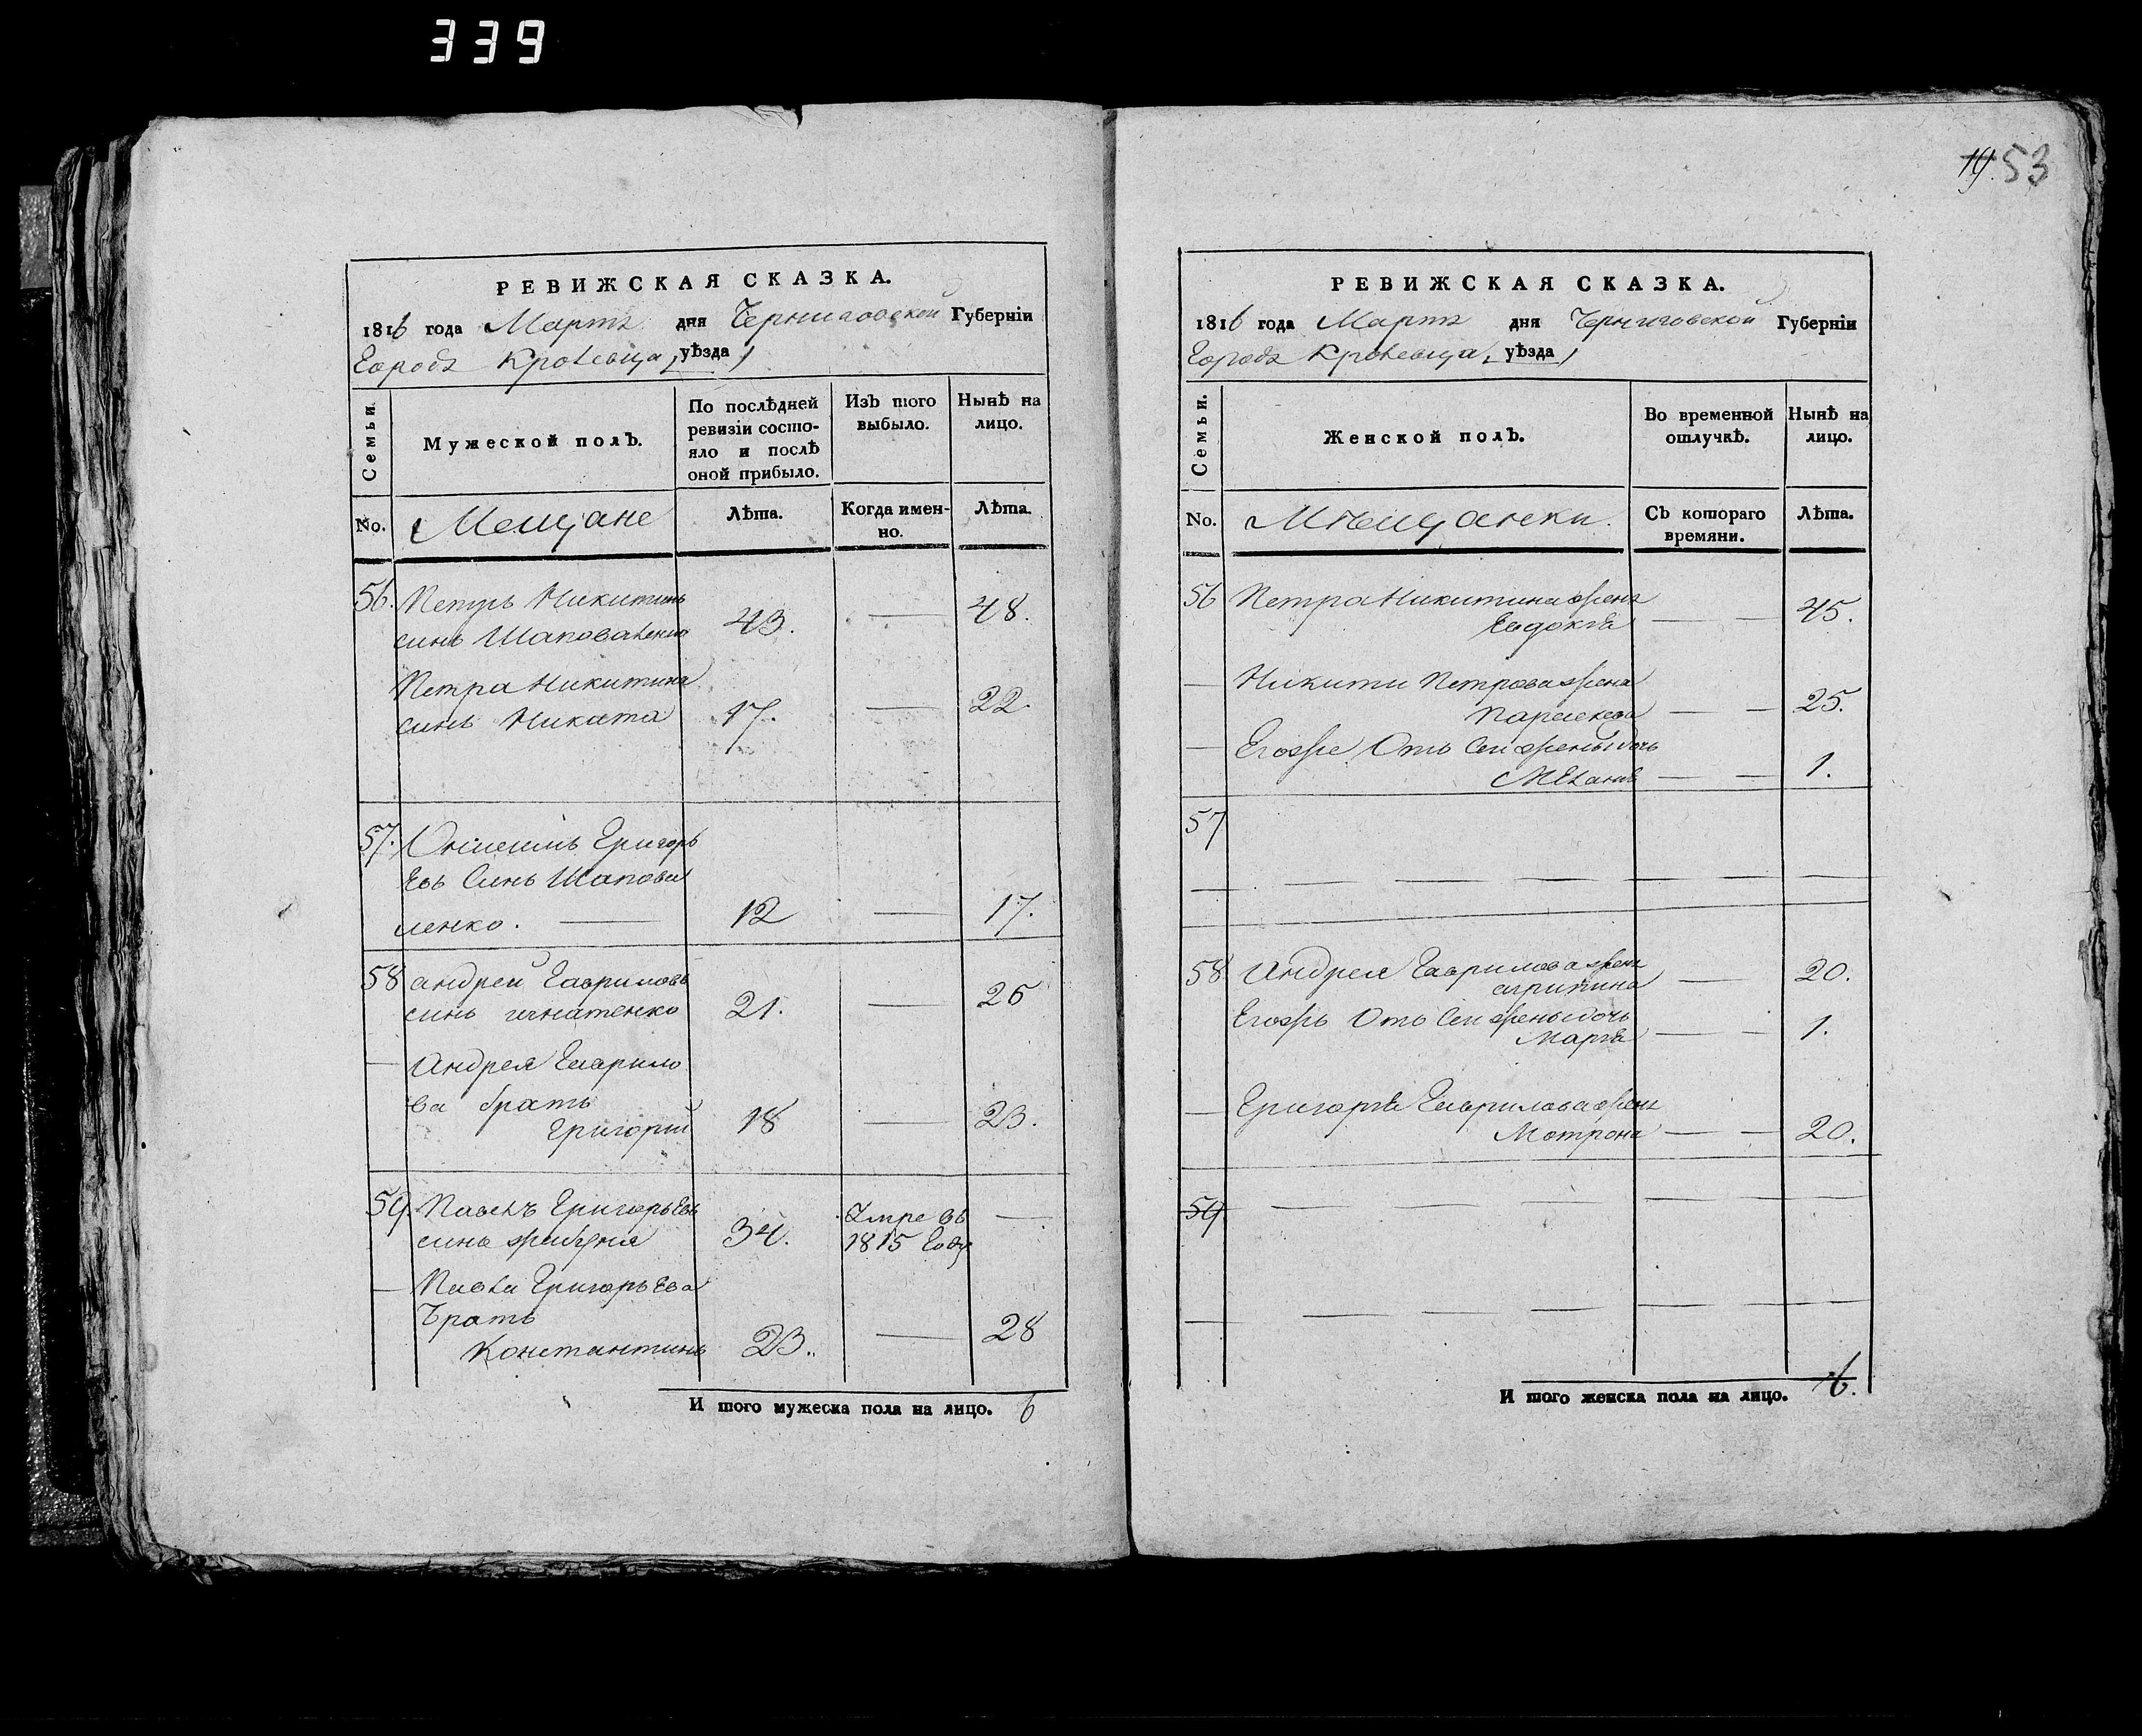 339
РЕВИЖСКАЯ СКАЗКА.
1816 года Мартъ дня Черниговской Губерніи
Городъ Кролевца, уѣзда
Семьи.
Мужеской полъ.
По послѣдней ревизіи состояло и послѣ оной прибыло.
Изъ того выбыло.
Нынѣ на лицо.
No.
Мещане
Лѣта.
Когда именно.
Лѣта.
56. Петръ Никитинъ
синъ Шаповаленко 43. — 48.
Петра Никитина
синъ Никита 17. — 22.
57. Григорь
евъ Синъ Шапова
ленко. — 12 — 17.
58 андрей Гавриловъ
синъ игнатенко 21. — 26
— Андрея Гаврило
ва братъ
Григорий 18 — 23.
59. Павелъ Григорьевъ
синъ 34. Умре въ 1815 Году —
— Павла Григорьева
Братъ
Константинъ 23. — 28
И того мужеска пола на лицо. 6
19. 53
РЕВИЖСКАЯ СКАЗКА.
1816 года Мартъ дня Черниговской Губерніи
Городъ Кролевца, уѣзда
Семьи.
Женской полъ.
Во временной отлучкѣ.
Нынѣ на лицо.
No.
Мѣщанки.
Съ котораго времяни.
Лѣта.
56 Петра Никитина жена
Евдокія — — 45.
— Никити Петрова жена
Параскева — — 25.
— Егожъ Отъ Сей жены дочь
Меланія — — 1.
57
58 Андрея Гаврилова жена
агрипина — 20.
Егожъ Отъ Сей жены дочь
Марія — — 1.
— Григорія Гаврилова жена
Мотрона — — 20.
59
И того женска пола на лицо. 6.